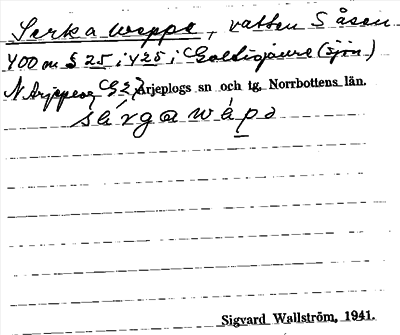 Serka woppe, vatten S åsen
400 m S 25 i Y25 i Galtisjaure (sjön)
N Arjeplog Arjeplogs sn och tg, Norrbottens län.
sárgawápo
Sigvard Wallström, 1941.